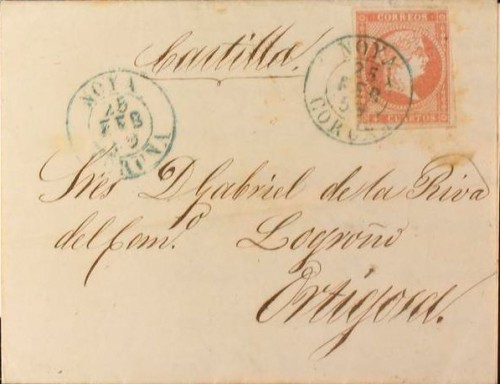 CORREOS
4 CUARTOS
NOYA
25 FEB
CORUÑA
Castilla.
NOYA
25
FEB
CORUÑA
Sres D Gabriel de la Riva
del Com.º Logroño
Ortigosa.